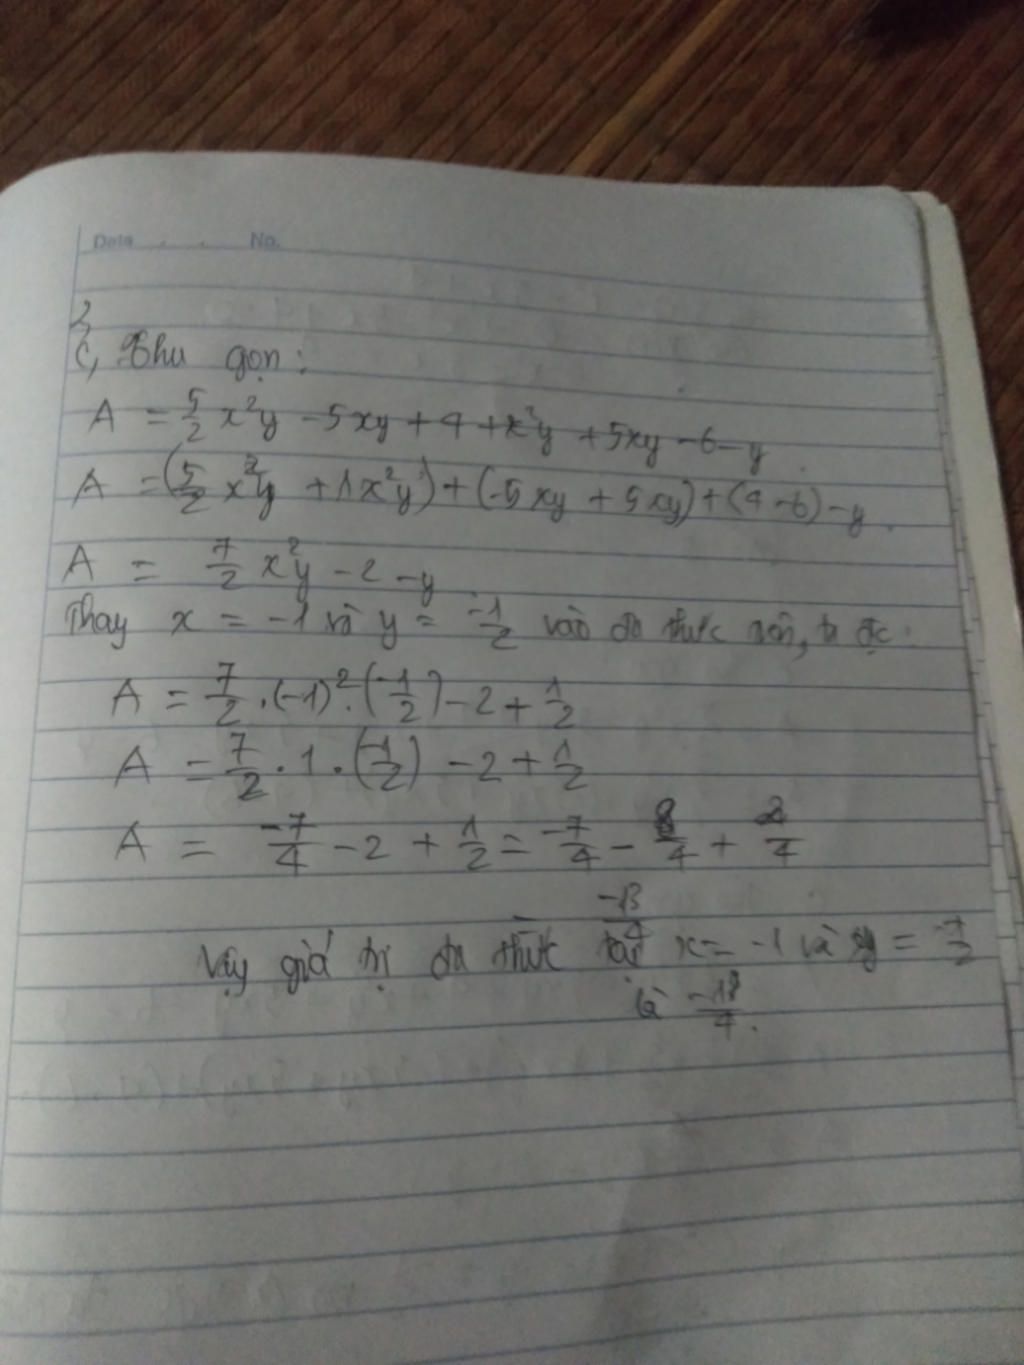 Date . . No.
2,
c, Thu gọn:
A = 5/2 x²y - 5xy + 4 + x²y + 5xy - 6 - y
A = (5/2 x²y + 1x²y) + (-5xy + 5xy) + (4 - 6) - y.
A = 7/2 x²y - 2 - y
Thay x = -1 và y = -1/2 vào đa thức trên, ta đc:
A = 7/2 . (-1)² . (-1/2) - 2 + 1/2
A = 7/2 . 1 . (-1/2) - 2 + 1/2
A = -7/4 - 2 + 1/2 = -7/4 - 8/4 + 2/4
-13/4
Vậy giá trị đa thức tại x = -1 và y =
là -13/4.